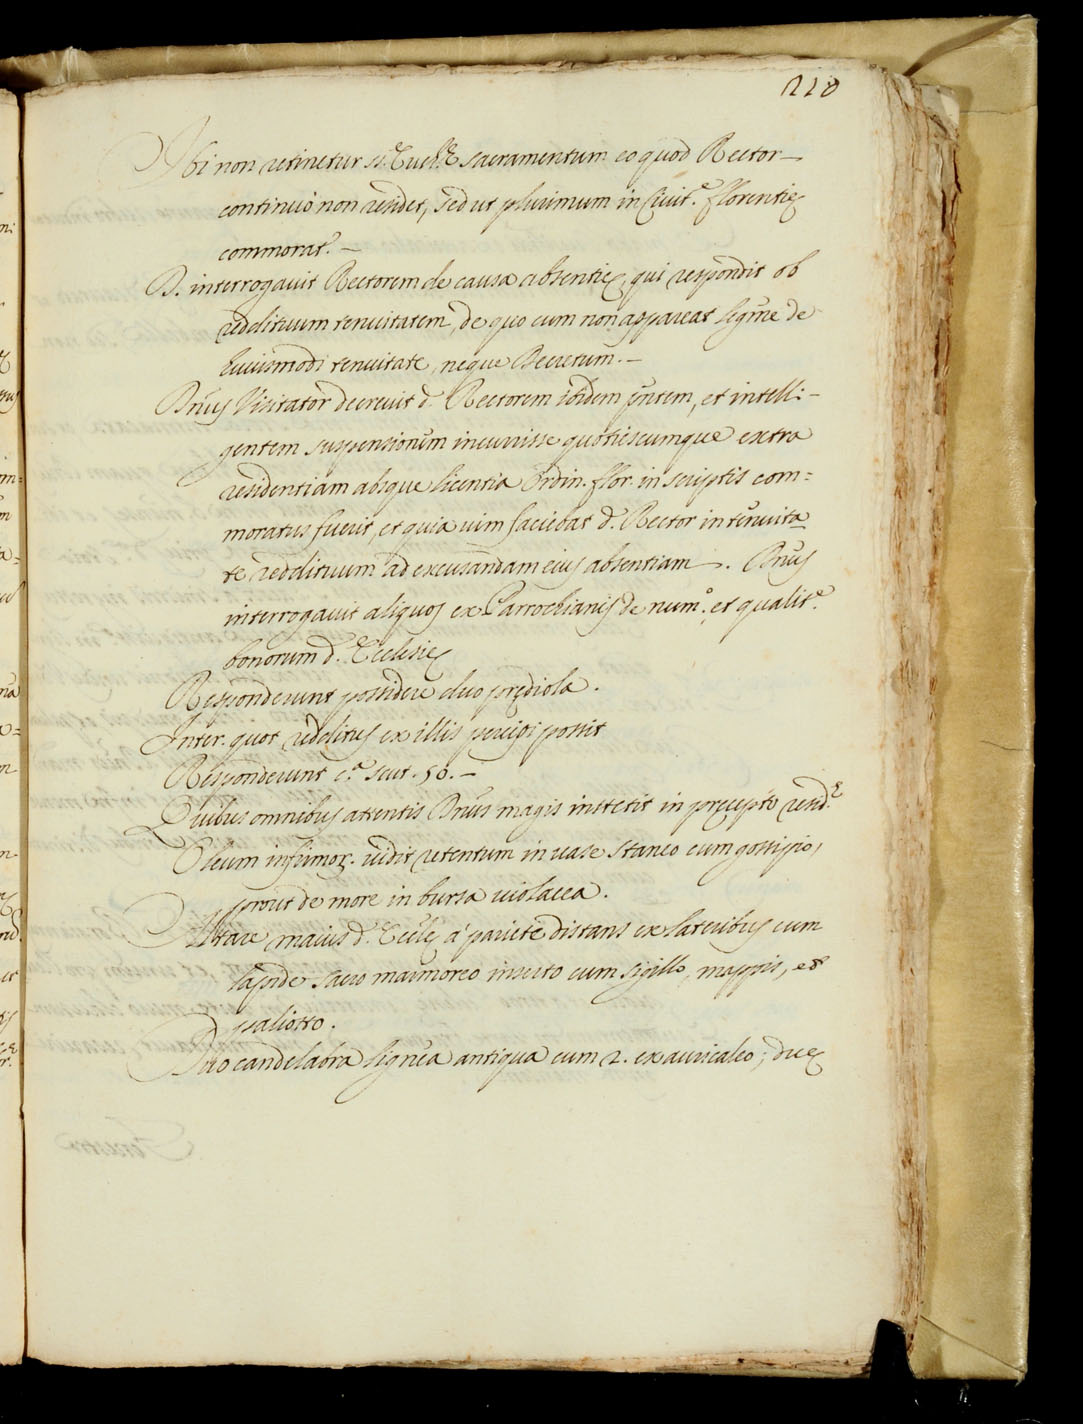 210
Ibi non retinetur ss. Euch.e sacramentum eo quod Rector
continuò non residet, sed ut plurimum in Civit.e florentię
commorat.r
D. interrogauit Rectorem de causa absentię, qui respondit ob
reddituum tenuitatem, de quo cum non appareat legme de
huiusmodi tenuitate, neque Decretum.
Dnus Visitator decreuit d. Rectorem ibidem pntem, et intelli:
gentem suspensionum incurrisse quotiescumque extra
residentiam absque licentia Ordin. flor. in scriptis com=
moratus fuerit, et quia uim faciebat d. Rector in tenuita
te reddituum ad excusandam eius absentiam. Dnus
interrogauit aliquos ex Parrochianis de num.o et qualit.e
bonorum d. Ecclesię
Responderunt possidere duo prędiola.
Inter. quot redditus ex illis percipi possit
Responderunt c.a scut. 50.
Quibus omnibus attentis Dnus magis institit in pręcepto resid.e
Oleum infirmor. uidit retentum in uase staneo cum gossipio,
prout de more in bursa uiolacea.
Altare maius d. Ecclę à pariete distans ex lateribus cum
lapide sacro marmoreo inserto cum sigillo, mappis, et
paliotto.
Duo candelabra lignea antiqua cum 2. ex auricalco; duę